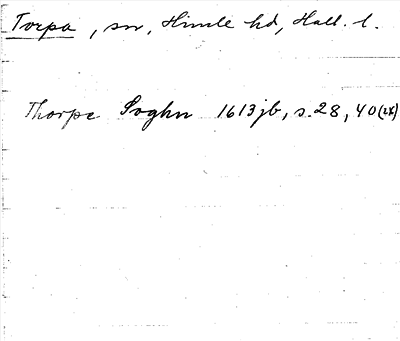 Torpa, sn, Himle hd, Hall. l.
Thorpe Soghn 1613 jb, s. 28, 40 (2x)